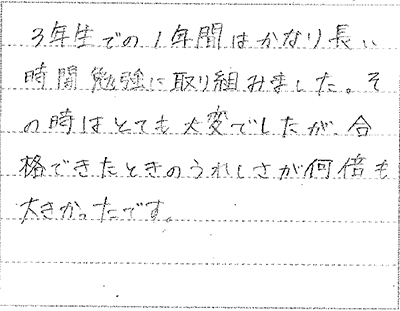 3年生での1年間はかなり長い
時間勉強に取り組みました。そ
の時はとても大変でしたが、合
格できたときのうれしさが何倍も
大きかったです。